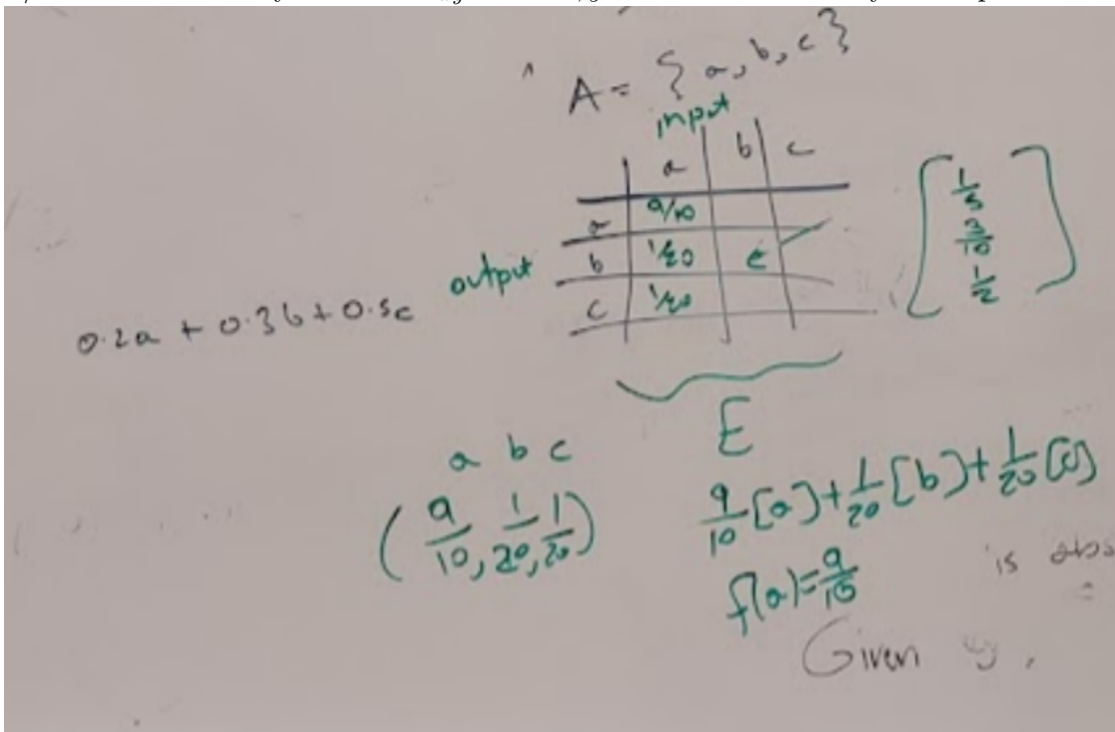 A = { a, b, c }
input
a b c
a 9/10
output b 1/20 ε
c 1/20
[ 1/5 3/10 1/2 ]
0.2a + 0.3b + 0.5c
E
a b c
( 9/10, 1/20, 1/20 )
9/10 [a] + 1/20 [b] + 1/20 [c]
f(a) = 9/10
is abs
Given